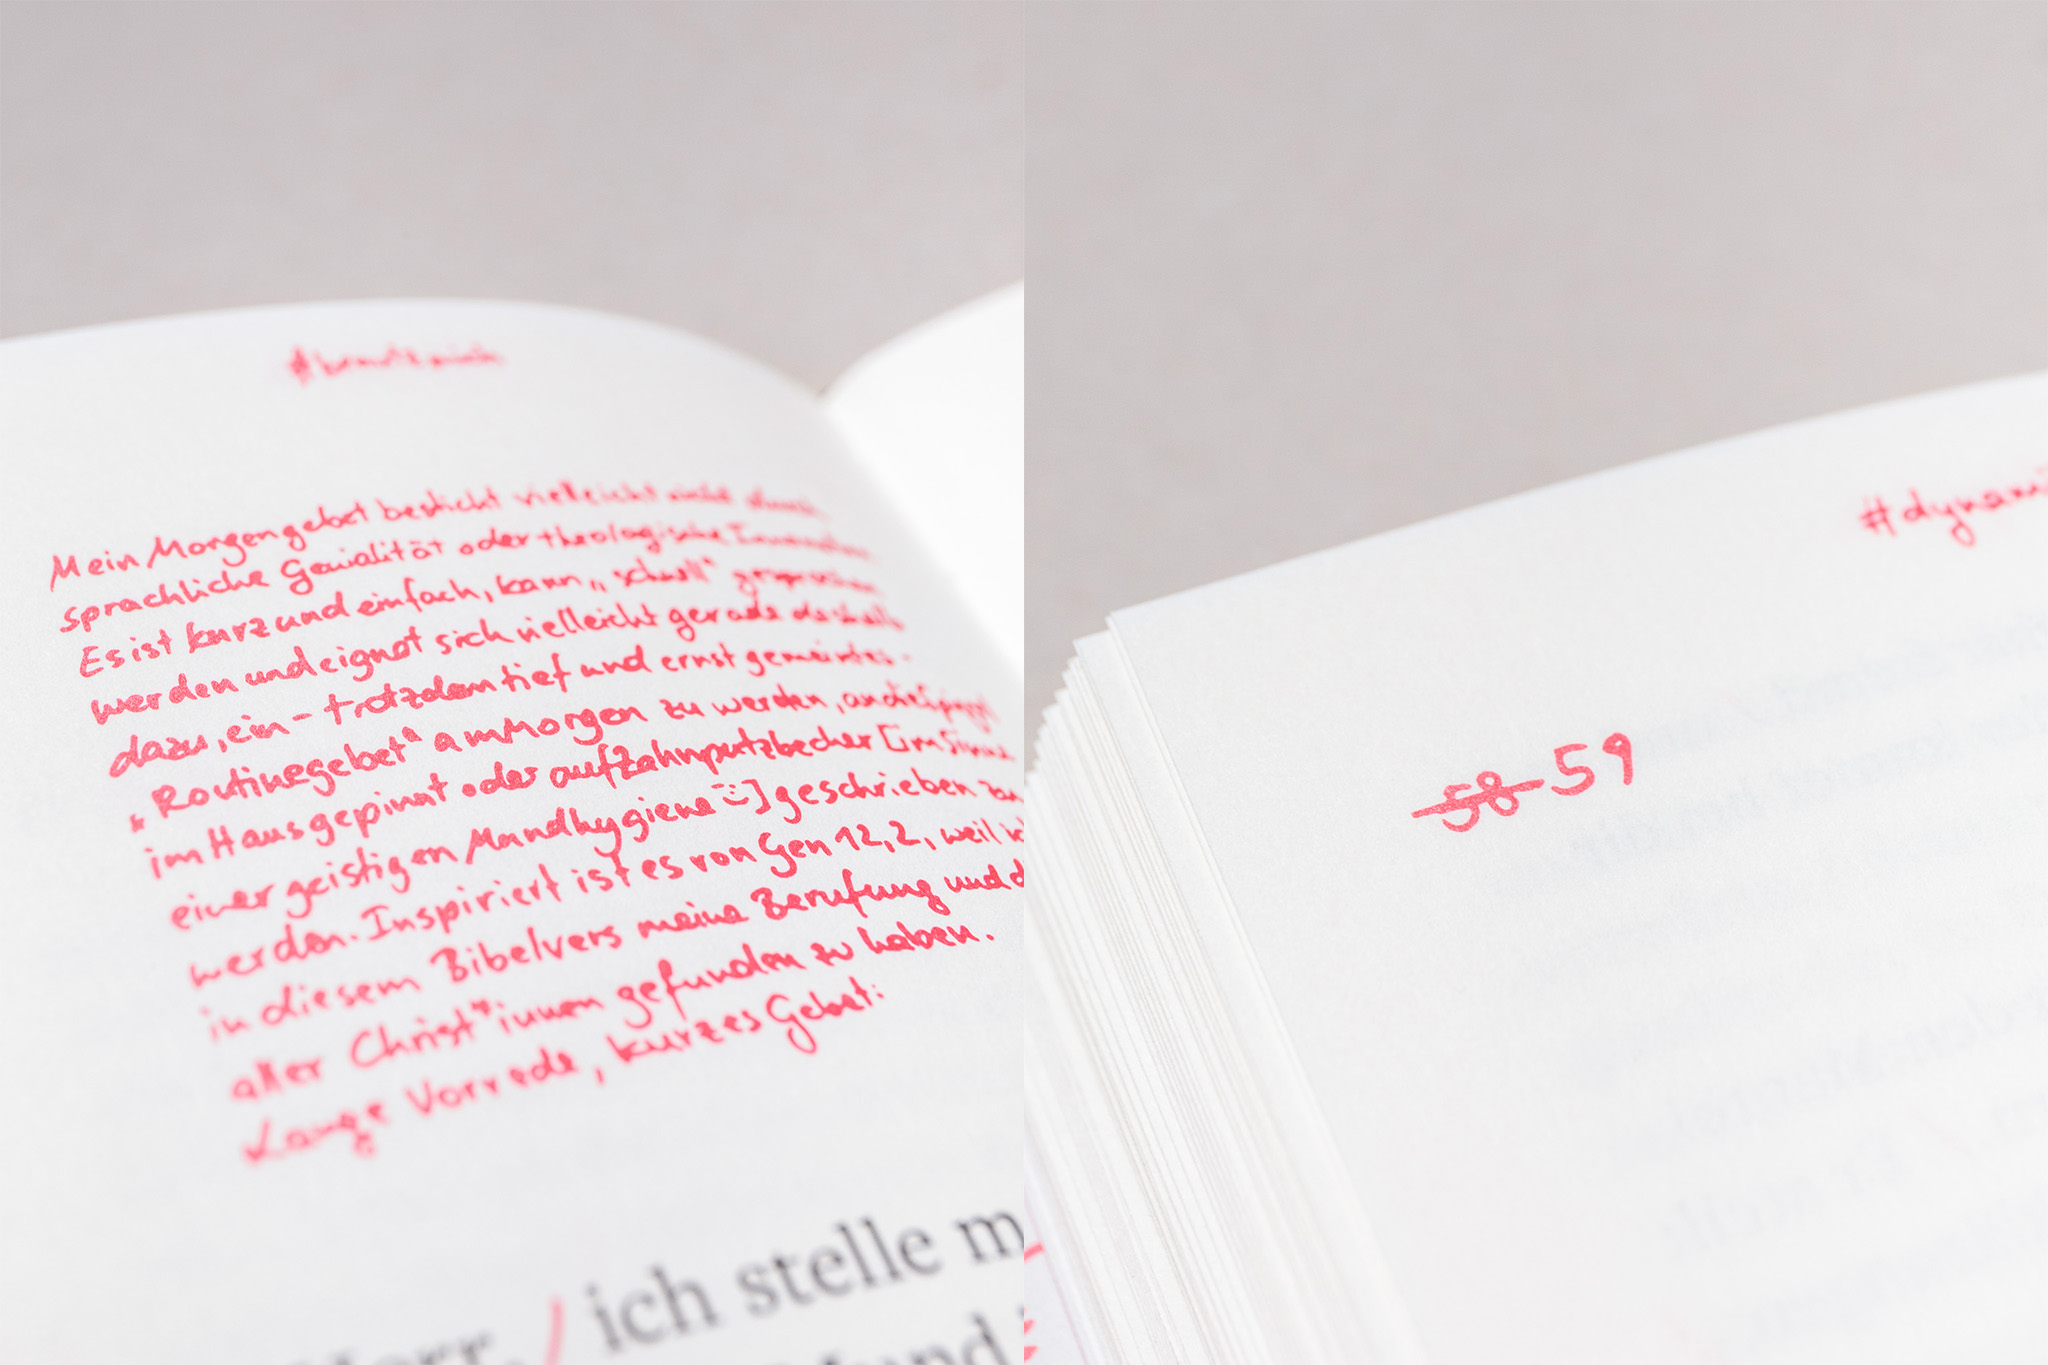 Mein Morgengebet besticht vielleicht nicht durch
sprachliche Genialität oder theologische
Es ist kurz und einfach, kann „schnell“ gesprochen
werden und eignet sich vielleicht gerade deshalb
dazu, ein – trotzdem tief und ernst gemeintes –
„Routinegebet“ am Morgen zu werden, an die
im Haus gepinnt oder auf Zahnputzbecher [im Sinne
einer geistigen Mundhygiene :-)] geschrieben zu
werden. Inspiriert ist es von Gen 12,2, weil
in diesem Bibelvers meine Berufung und
aller Christ*innen gefunden zu haben.
Lange Vorrede, kurzes Gebet:
Herr, / ich stelle m
Mund
#dynami
58 59